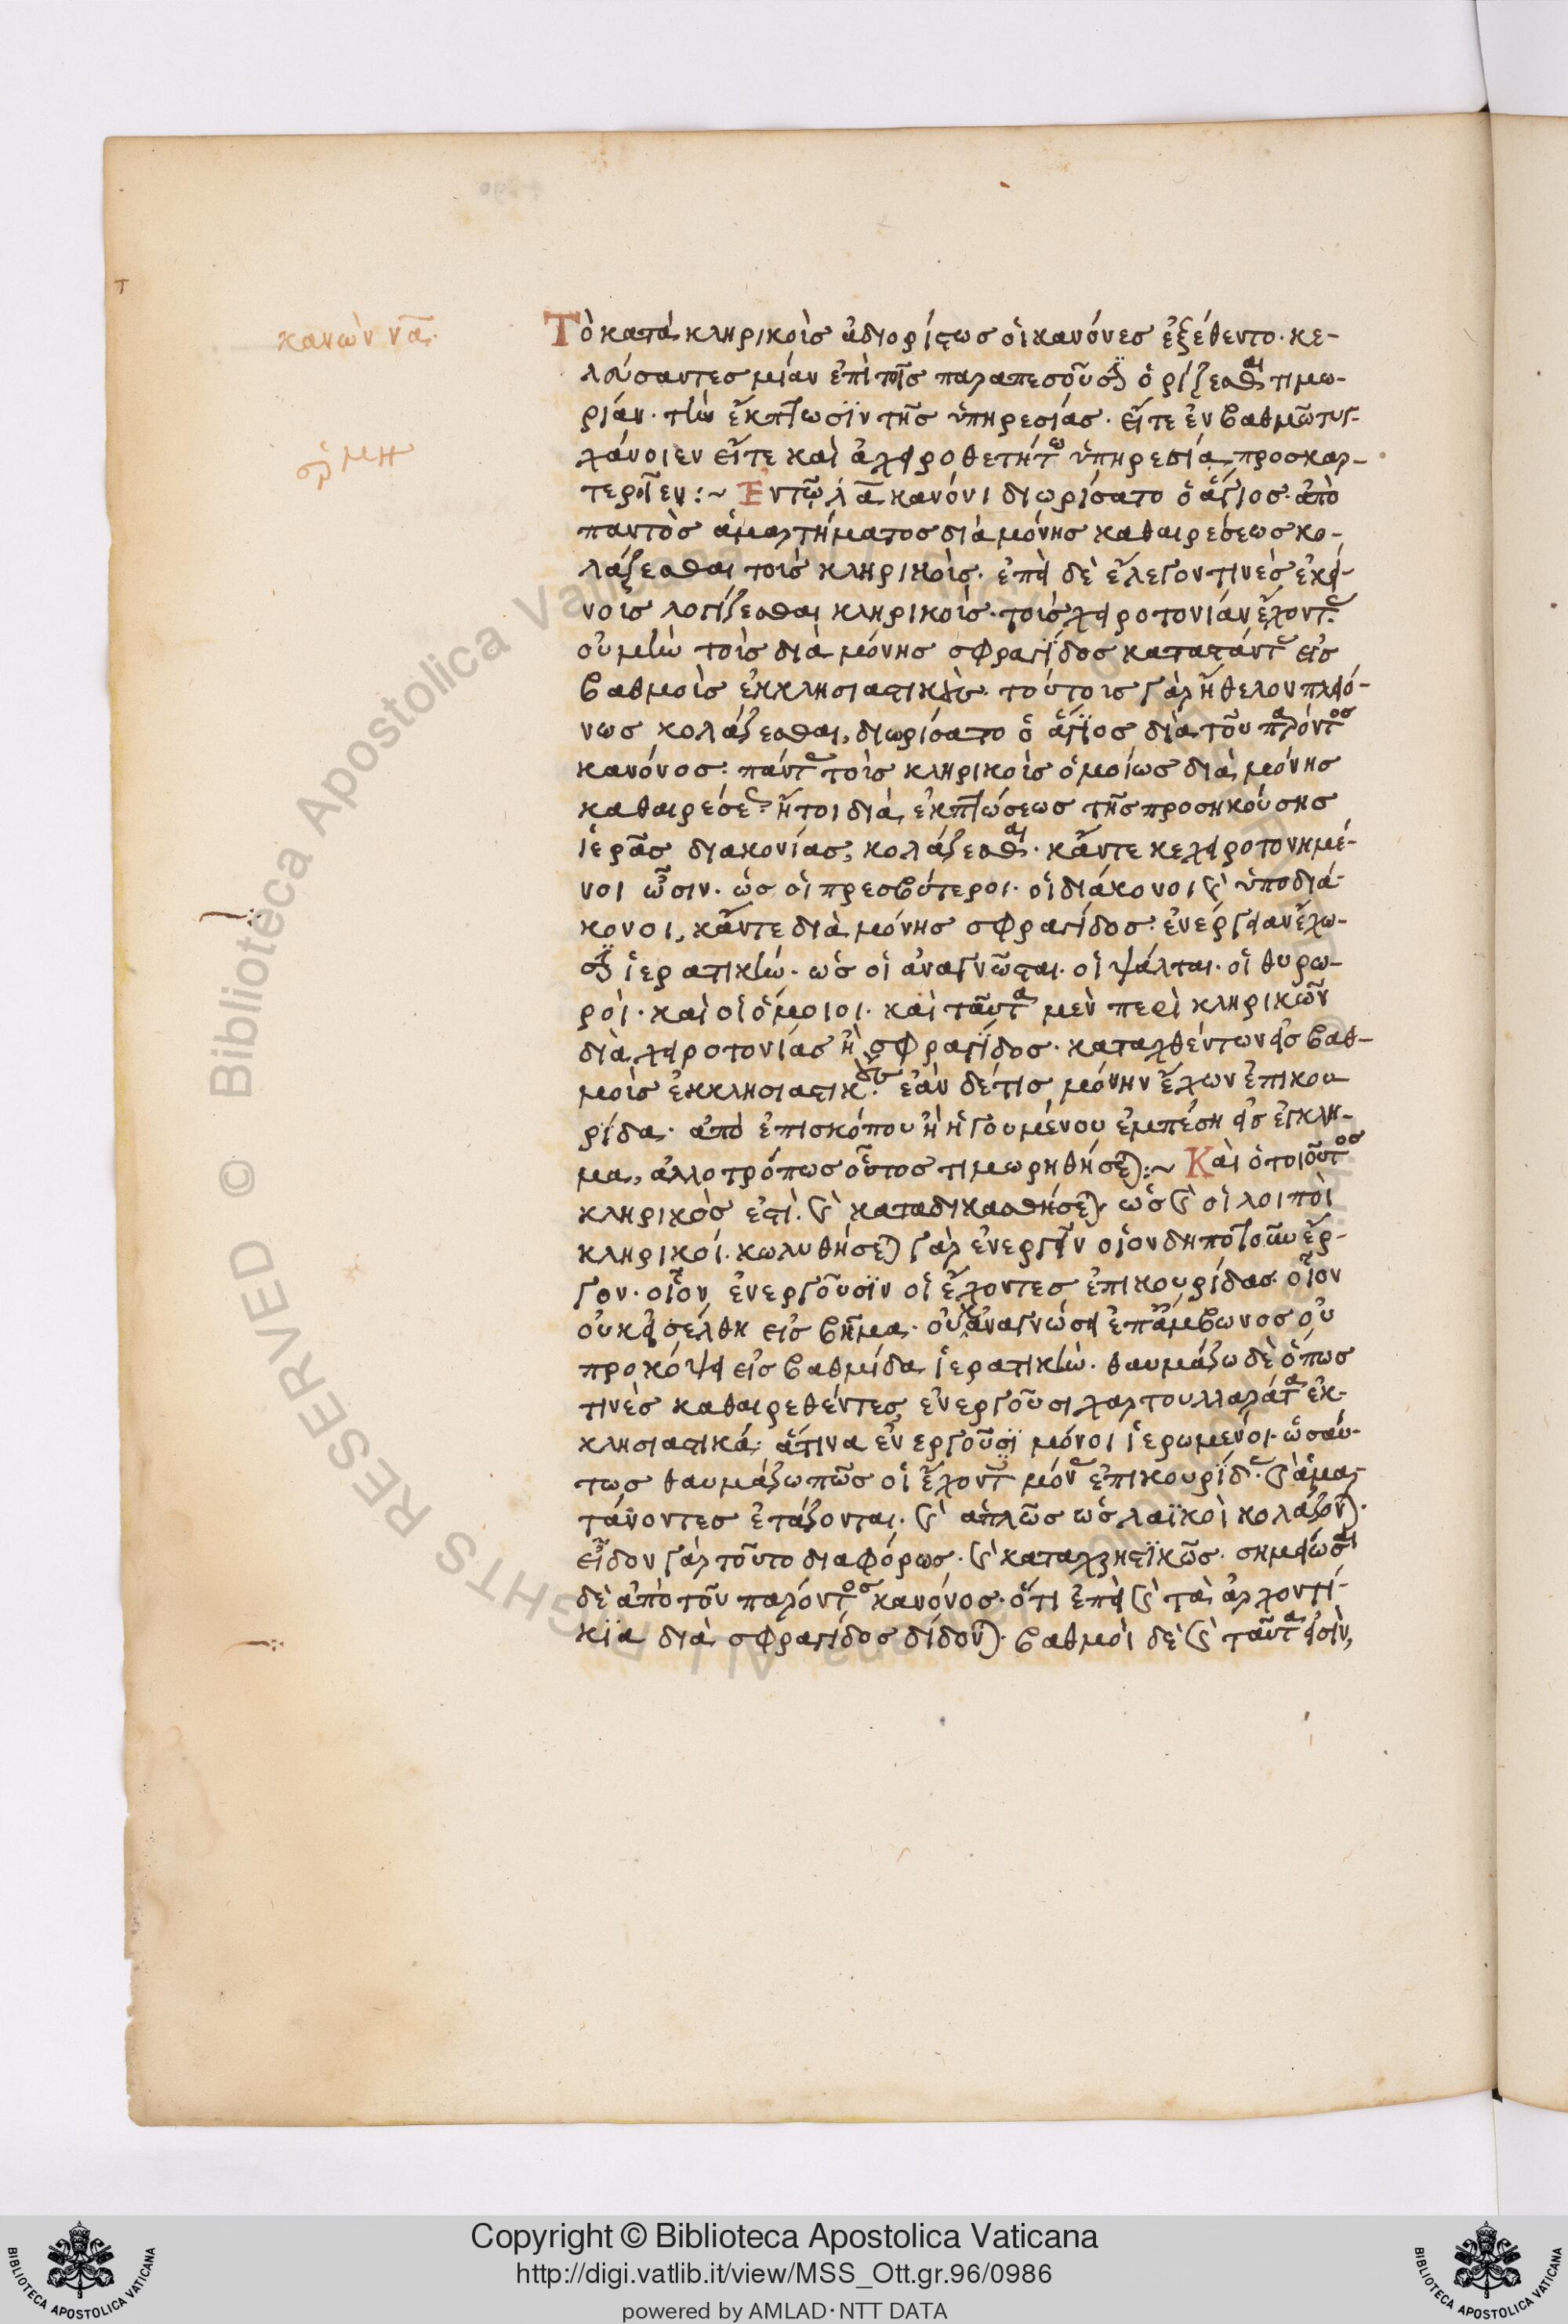 κανὼν να.
Τὸ κατὰ κληρικοὺς ἀδιορίστως οἱ κανόνες ἐξέθεντο. κε-
λεύσαντες μίαν ἐπὶ τοῖς παραπεσοῦσιν ὁρίζεσθαι τιμω-
ρίαν. τὴν ἔκπτωσϊν τῆς ὑπηρεσίας. εἴτε ἐν βαθμῶ τυγ-
χάνοιεν εἴτε καὶ ἀχειροθετήτω ὑπηρεσία προσκαρ-
τεροῖεν :~ Ἐν τῶ λα κανόνι διωρίσατο ὁ ἅγιος. ἀπὸ
παντὸς ἁμαρτήματος διὰ μόνης καθαιρέσεως κο-
λάζεσθαι τοὺς κληρικοὺς. ἐπεὶ δὲ ἔλεγον τινὲς ἐκεί-
νους λογίζεσθαι κληρικοὺς. τοὺς χειροτονίαν ἔχοντας.
οὐ μὴν τοὺς διὰ μόνης σφραγίδος καταταγέντας εἰς
βαθμοὺς ἐκκλησιαστικοὺς. τούτοις γὰρ ἤθελον πλειό-
νως κολάζεσθαι, διωρίσατο ὁ ἅγϊος διὰ τοῦ παρόντος
κανόνος. πάντας τοὺς κληρικοὺς ὁμοίως διὰ μόνης
καθαιρέσεως ἤτοι διὰ ἐκπτώσεως τῆς προσηκούσης
ἱερᾶς διακονίας, κολάζεσθαι. κἄντε κεχειροτονημέ-
νοι ὦσιν. ὡς οἱ πρεσβύτεροι. οἱ διάκονοι καὶ ὑποδιά-
κονοι, κἄντε διὰ μόνης σφραγίδος. ἐνέργειαν ἔχω-
σιν ἱερατικὴν. ὡς οἱ ἀναγνῶσται. οἱ ψάλται. οἱ θυρω-
ροὶ. καὶ οἱ ὅμοιοι. καὶ ταῦτα μὲν περὶ κληρικῶν
διὰ χειροτονίας ἢ σφραγϊδος. καταχθέντων εἰς βαθ-
μοὺς ἐκκλησιαστικοὺς. ἐὰν δέ τις μόνην ἔχων ἐπικου
ρίδα. ἀπὸ ἐπισκόπου ἢ ἡγουμένου ἐμπέση εἰς ἔγκλη-
μα, ἀλλοτρόπως οὗτος τιμωρηθήσεται :~ Καὶ ὁ τοιοῦτος
κληρικὸς ἐστὶ. καὶ καταδικασθήσεται. ὡς καὶ οἱ λοιποὶ
κληρικοί. κωλυθήσεται γὰρ ἐνεργεῖν οἷον δήποτε ἂν ἔρ-
γον. οἷον ἐνεργοῦσϊν οἱ ἔχοντες ἐπικουρίδας. οἷον
οὐκ εἰσέλθη εἰς βῆμα. οὐκ ἀναγνώσει ἐπ' ἄμβωνος οὐ
προκόψει εἰς βαθμίδα ἱερατικὴν. θαυμάζω δὲ ὅπως
τινὲς καθαιρεθέντες ἐνεργοῦσι χαρτουλλαράτα ἐκ-
κλησιαστικά. ἅτινα ἐνεργοῦσϊ μόνοι ἱερωμένοι. ὡσαύ-
τως θαυμάζω πῶς οἱ ἔχοντες μόνας ἐπικουρίδας καὶ ἁμαρ
τάνοντες ἐτάζονται. καὶ ἁπλῶς ὡς λαϊκοὶ κολάζονται.
εἶδον γὰρ τοῦτο διαφόρως. καὶ καταχρηστϊκῶς. σημείωσαι
δὲ ἀπὸ τοῦ παρόντος κανόνος. ὅτι ἐπεὶ καὶ τὰ ἀρχοντί-
κϊα διὰ σφραγίδος δίδονται. βαθμοὶ δὲ καὶ ταῦτα εἰσὶν,
Copyright © Biblioteca Apostolica Vaticana
http://digi.vatlib.it/view/MSS_Ott.gr.96/0986
powered by AMLAD·NTT DATA
BIBLIOTECA APOSTOLICA VATICANA
BIBLIOTECA APOSTOLICA VATICANA
Biblioteca Apostolica Vaticana ALL RIGHTS RESERVED ©